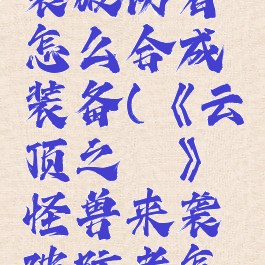 袭破防者
怎么合成
装备(《云
顶之 》
怪兽来袭
破防者怎